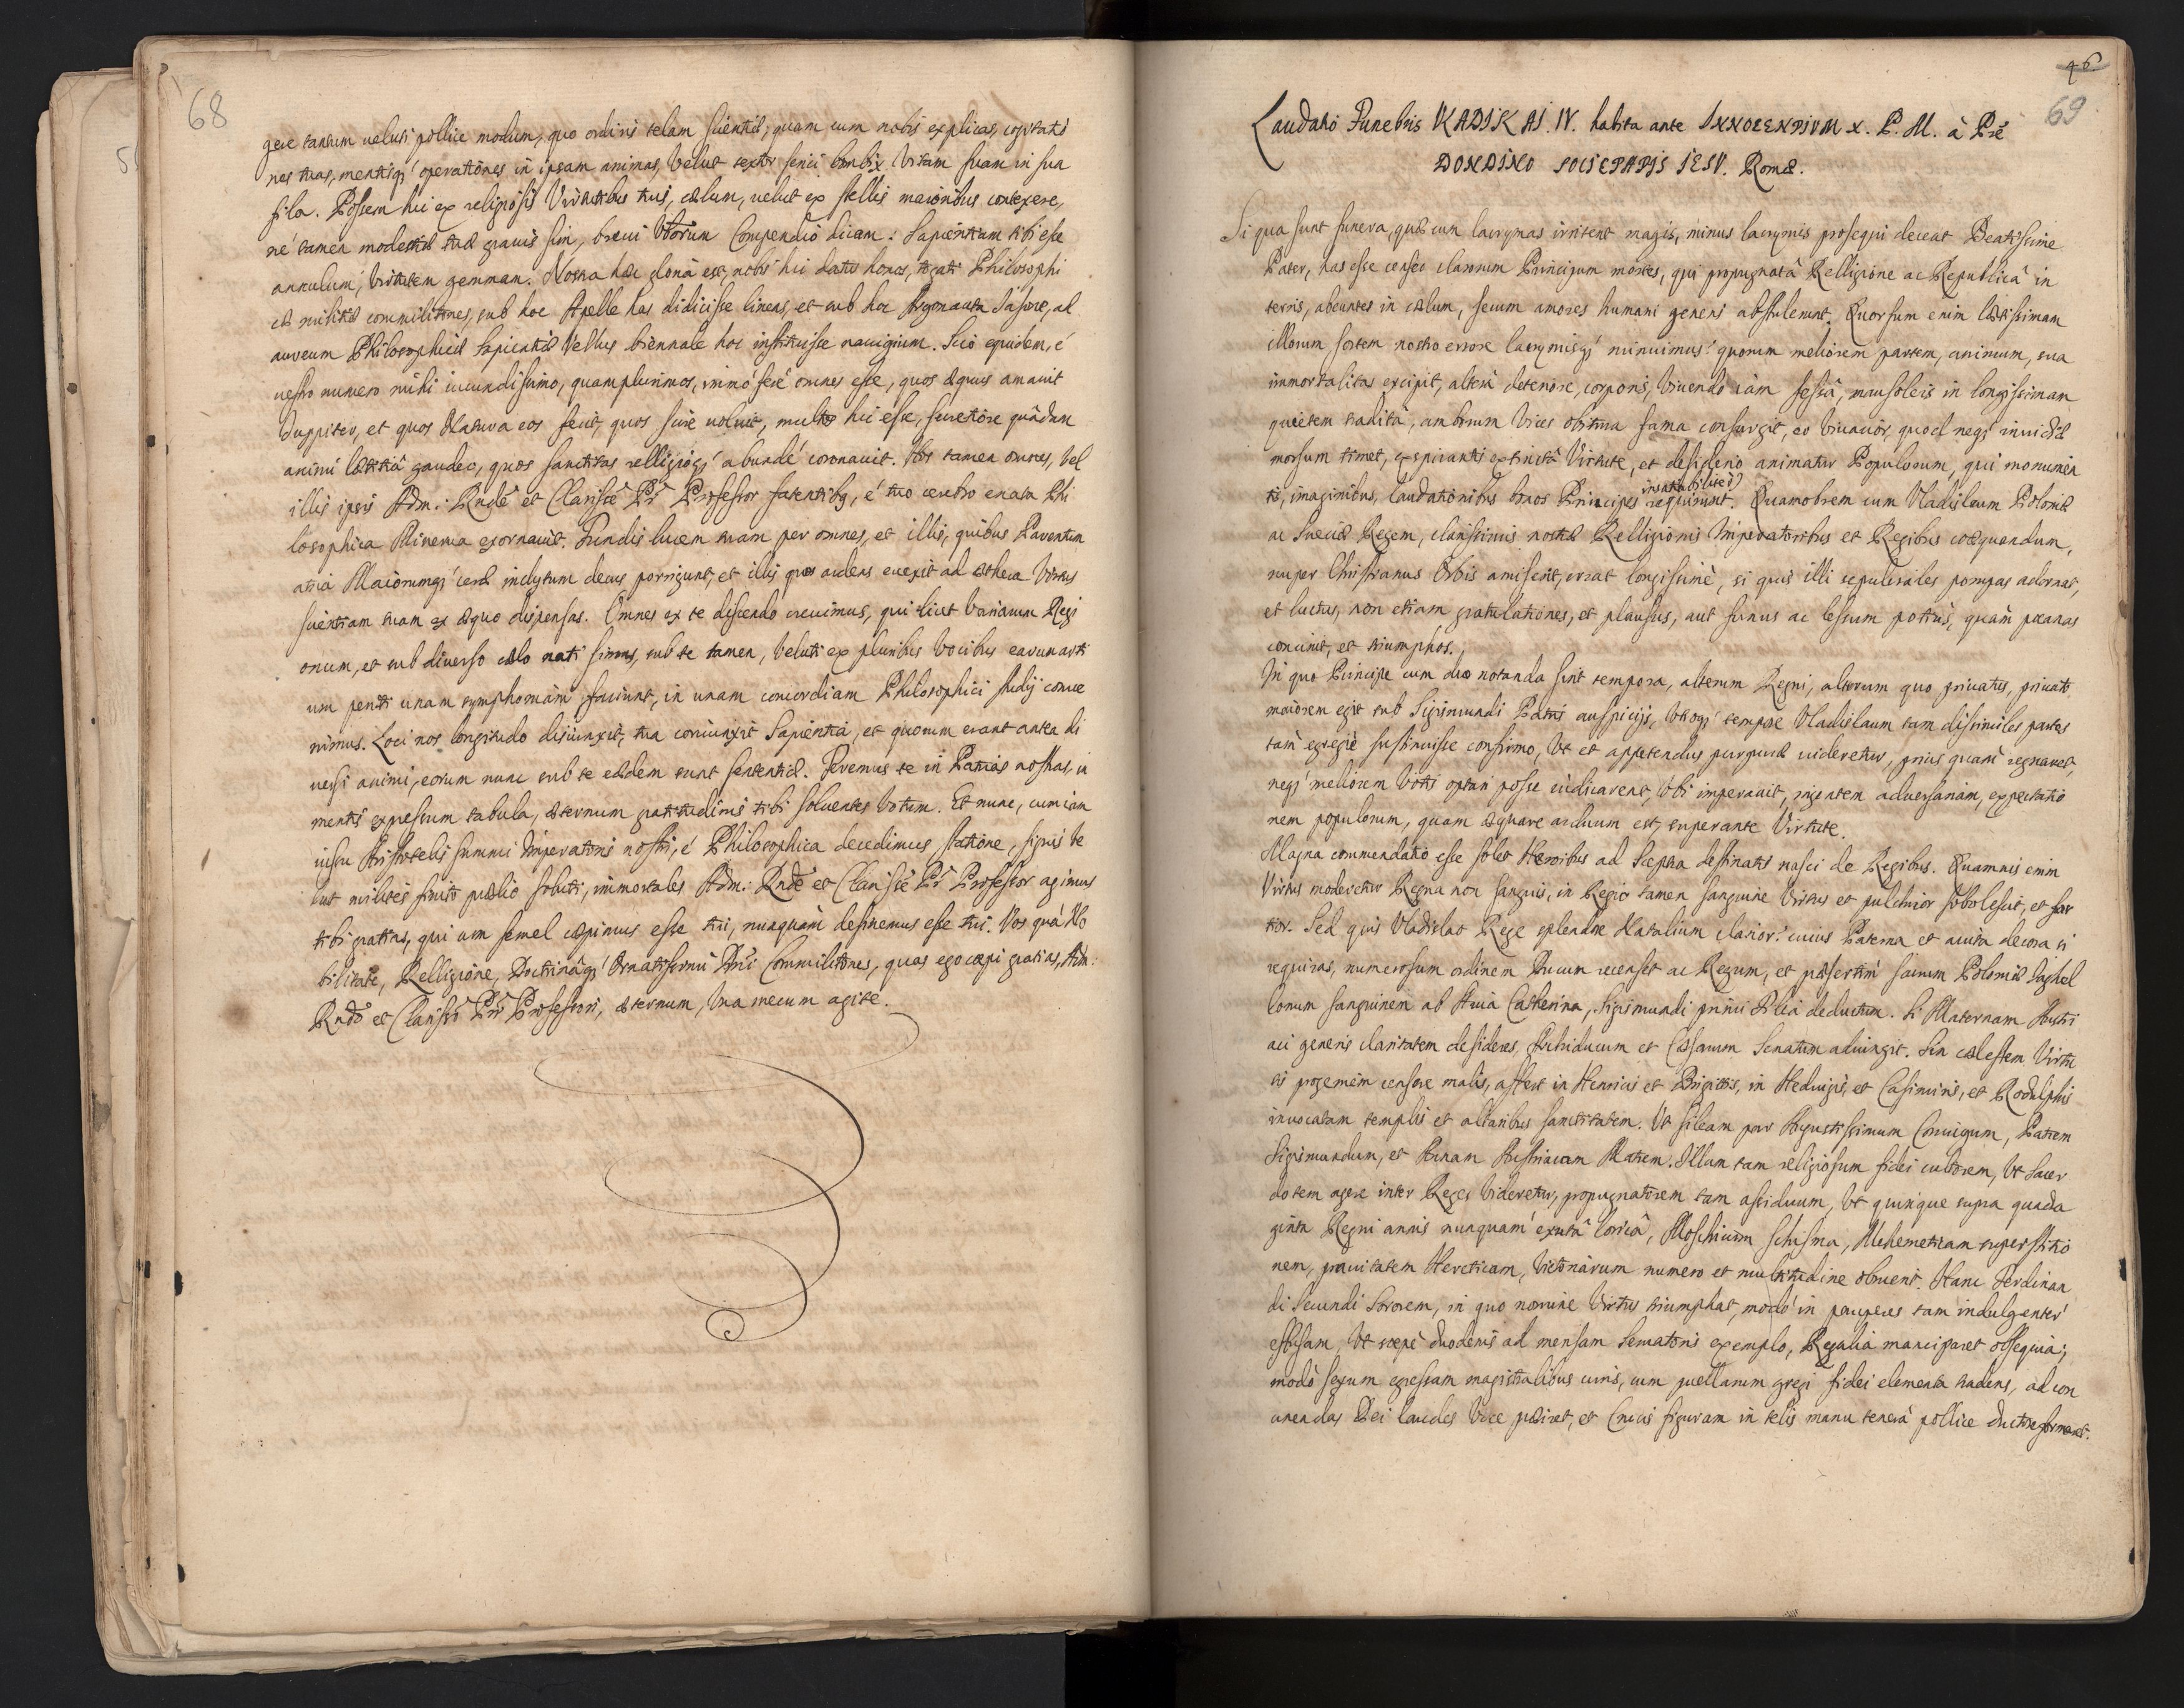 68
gere tantum veluti pollice modum, quo ordinis telam scientiæ, quam cum nobis explicas, cogitatio
nes tuas, mentisq́ operationes in ipsam animas, velut textor serici bombix vitam suam in sua
fila. Possem hic ex religiosis Virtutibus tuis, cælum, velut ex stellis maioribus contexere,
né tamen modestiæ tuæ gravis sim, brevi votorum Compendio dicam: Sapientiam tibi esse
annulum, virtutem gemmam. Nostra hæc gloria est, nobis hic datus honos, togati Philosophi
cæ militiæ commilitones, sub hoc Apelle has didicisse lineas, et sub hoc Argonauta Jasone, ad
aureum Philosophicæ Sapientiæ Vellus biennale hoc instituisse navigium. Scio equidem, é
vestro numero mihi iucundissimo, quamplurimos, immó feré omnes esse, quos æquus amavit
Juppiter, et quos Natura eos fecit, quos scire voluit, multos hic esse, secretiore quâdam
animi lætitiâ gaudeo, quos sanctitas relligioq́ abundé coronavit. Hos tamen omnes, vel
illis ipsis Adm: Rndé et Clarissé Pr̃ Professor fatentibq, é tuo cerebro enata Phi
losophica Minerva exornavit. Fundis lucem tuam per omnes, et illis, quibus Parentum
atria Maiorumq́ ceræ inclytum decus porrigunt, et illis quos ardens evexit ad æthera Virtus
scientiam tuam ex æquo dispensas. Omnes ex te discendo crevimus, qui licet variarum Regi
onum, et sub diverso cælo nati simus, sub te tamen, veluti ex pluribus vocibus earum arti
um periti unam symphoniam faciunt, in unam concordiam Philosophici studij conve
nimus. Loci nos longitudo disiunxit, tua coniunxit Sapientia, et quorum erant antea di
versi animi, eorum nunc sub te eædem sunt sententiæ. Feremus te in Patrias nostras, in
mentis expressum tabula, æternum gratitudinis tibi solventes votum. Et nunc, cum iam
iussu Aristotelis summi Imperatoris nostri, é Philosophica decedimus, statione, signis ve
lut milites finito prælio soluti, immortales Adm: Rndé et Clarissé Pr̃ Professor agimus
tibi gratias, qui cum semel cæpimus esse tui, nunquàm desinemus esse tui. Vos quá No
bilitate, Relligione, Doctrinâq́ Ornatissimi Dn̄i Commilitones, quas ego cæpi gratias, Adm:
Rndo et Clarisso Prī Professori, æternum, una mecum agite.
46
69
Laudatio Funebris VLADISLAI. IV. habita ante INNOCENTIVM X. P. M. à Prē
DONDINO SOCIETATIS IESV. Romæ.
Si qua sunt funera, quæ cum lacrymas irritent magis, minus lacrymis prosequi deceat Beatissime
Pater, has esse censeo clarorum Principum mortes, qui propugnatâ Relligione ac Republicâ in
terris, abeuntes in cælum, secum amores humani generis abstulerunt. Quorsum enim lætissimam
illorum sortem nostro errore lacrymisq́ minuimus? quorum meliorem partem, animum, sua
immortalitas excipit, alterâ deteriore, corporis, vivendo iàm fessâ, mausoleis in longissimam
quietem traditâ, ambarum vices obitura fama consurgit, eo vivacior, quod neq́ invidiæ
morsum timet, exspirantis extinctâ Virtute, et desiderio animatur Populorum, qui monumen
tis, imaginibus, laudationibus bonos Principes insatiabiliter requirunt. Quamobrem cum Vladislaum Poloniæ
ac Sueciæ Regem, clarissimis nostræ Relligionis Imperatoribus et Regibus coæquandum,
nuper Christianus Orbis amiserit, errat longissimè, si quis illi sepulcrales pompas adornat,
et luctus, non etiam gratulationes, et plausus, aut funus ac lessum potius, quàm pæanas
concinit, et triumphos.
In quo Principe cum duo notanda sint tempora, alterum Regni, alterum quo privatus, privato
maiorem egit sub Sigismundi Patris auspicijs, utroq́ tempore Vladislaum tam dissimiles partes
tam egregiè sustinuisse confirmo, Vt et appetendus purpuræ videretur, prius quam regnaret,
neq́ meliorem votis optari posse iudicarent, ubi imperavit, ingentem adversariam, expectatio
nem populorum, quam æquare arduum est, superante Virtute.
Magna commendatio esse solet Heroibus ad Sceptra destinatis nasci de Regibus. Quamvis enim
Virtus moderetur Regna non sanguis, in Regio tamen sanguine Virtus et pulchrior sobolescit, et for
tior. Sed quis Vladislao Rege splendore Natalium clarior? cuius Paterna et avita decora si
requiras, numerosum ordinem Ducum recenset ac Regum, et præsertim sacrum Poloniæ Jagiel
lonum sanguinem ab Avia Catherina, Sigismundi primi Filia deductum. Si Maternam Austri
aci generis claritatem desideres, Archiducum et Cæsarum Senatum adiungit. Sin cælestem Virtu
tis progeniem censere malis, affert in Henricis et Brigittis, in Hedvigis, et Casimiris, et Rodulphis
invocatam templis et altaribus sanctitatem. Vt sileam par Augustissimum Coniugum, Patrem
Sigismundum, et Annam Austriacam Matrem. Illum tam religiosum fidei cultorem, Vt Sacer
dotem agere inter Reges videretur, propugnatorem tam assiduum, Vt quinque supra quadra
ginta Regni annis nunquam exutâ loricâ, Moschicum schisma, Mehemeticam superstitio
nem, pravitatem Hereticam, victoriarum numero et multitudine obruerit. Hanc Ferdinan
di Secundi Sororem, in quo nomine Virtus triumphat, modò in pauperes tam indulgenter
effusam, Vt sæpè duodenis ad mensam Servatoris exemplo, Regalia manciparet obsequia;
modò sexum egressam magistralibus curis, cum puellarum gregi fidei elementa tradens, ad con
cinendas Dei laudes voce præiret, et Crucis figuram in telis manu tenerâ pollice ductore formaret.